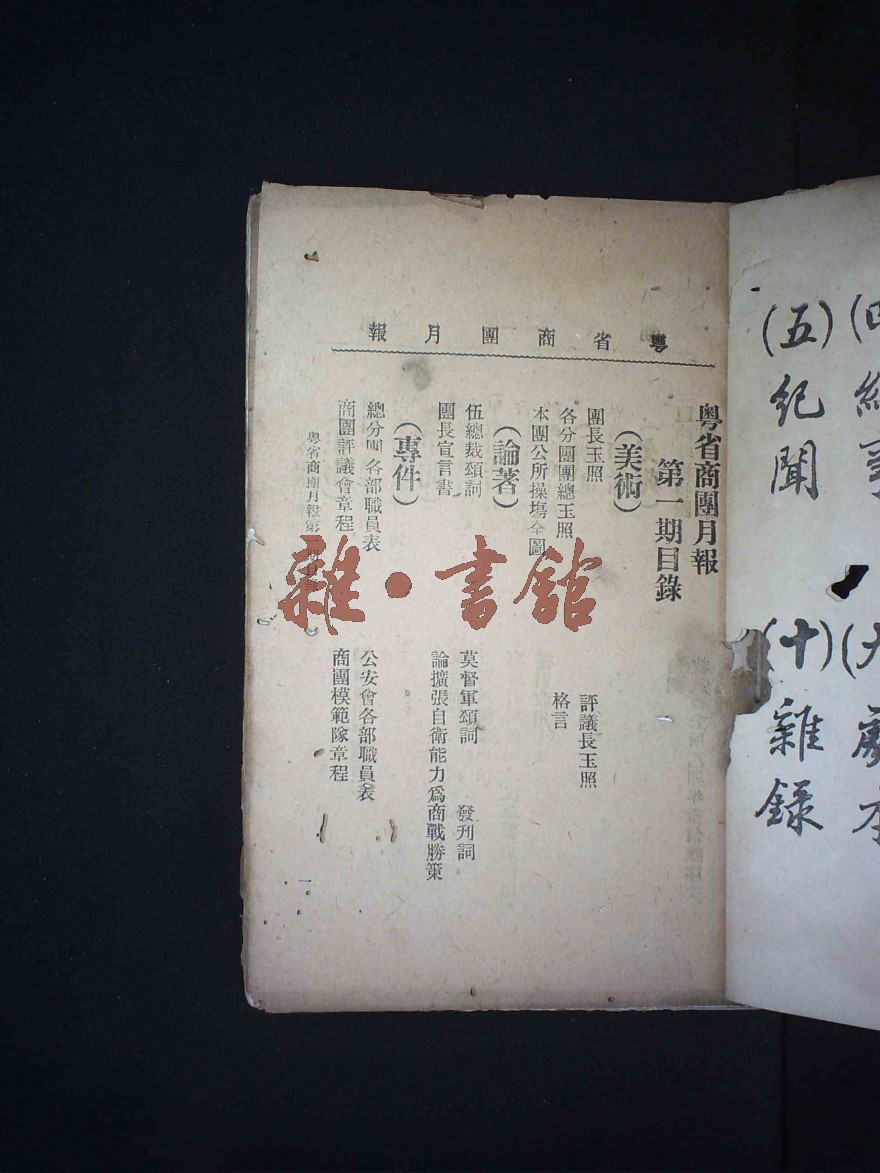 粵省商團月報
粵省商團月報
第一期目錄
(美術)
團長玉照
評議長玉照
各分團團總玉照
格言
本團公所操塲全圖
(論著)
伍總裁頌詞
莫督軍頌詞
發刊詞
團長宣言書
論擴張自衛能力爲商戰勝策
(專件)
總分團各部職員表
公安會各部職員表
商團評議會章程
商團模範隊章程
粵省商團月報第
一
(五)紀聞
(十)雜錄
雜·書館